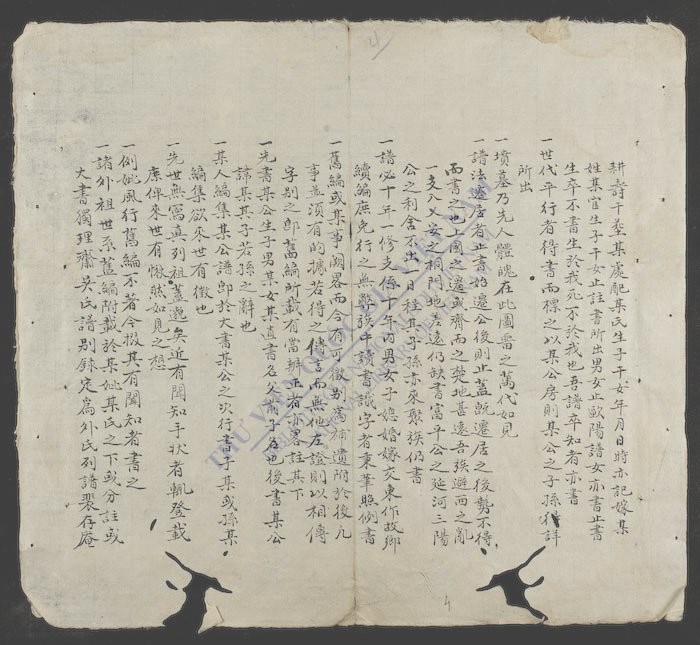 耕壽干黎某處肥某氏生子干女年月日時亦記嫁某
姓某官生子干女止註書所出男女止歐陽譜女亦書止書
生卒不書生於我死不於我也吾譜卒知者亦書
一世代平行者得書而標之以某公房則某公之子孫得詳
所出
一墳墓乃先人體魄在此圖畱之萬代如見
一譜法遷居者止書始遷公後則止蓋旣遷居之後勢不得
而書之也上國之遷或齊而之楚地甚遠吾族避西之亂
一支入乂安之祠門地在遠仍缺書富平公之延河三陽
公之利舍不出一日程其子孫亦來聚族仍書
一譜必十年一修支係十年內男女子娠婚嫁交東作故鄉
續編庶免行之無弊族中讀書識字者秉筆照例書
一舊編或某事闕畧而今有可徵別爲補遺附於後凡
事並須有的據若得之傳言而無他左證則以相傳
字別之卽舊編所載有當辨正者亦畧註其下
一先書某公生子男某女某直書名父前子名也後書某公
諱某其子若孫之辭也
一某人編集某公譜卽於大書某公之次行書子某或孫某
編集欲來世有徵也
一先世無寫真列祖蓋邈矣近有聞知手狀者輒登載
庶俾來世有愀然如見之想
一例妣風行舊編不著今掇其有聞知者書之
一諸外祖世系舊編附載於某妣某氏之下或分註或
大書獨理齋吳氏譜別錄定爲外氏列譜裴存庵
THƯ VIỆN QUỐC GIA VIỆT NAM